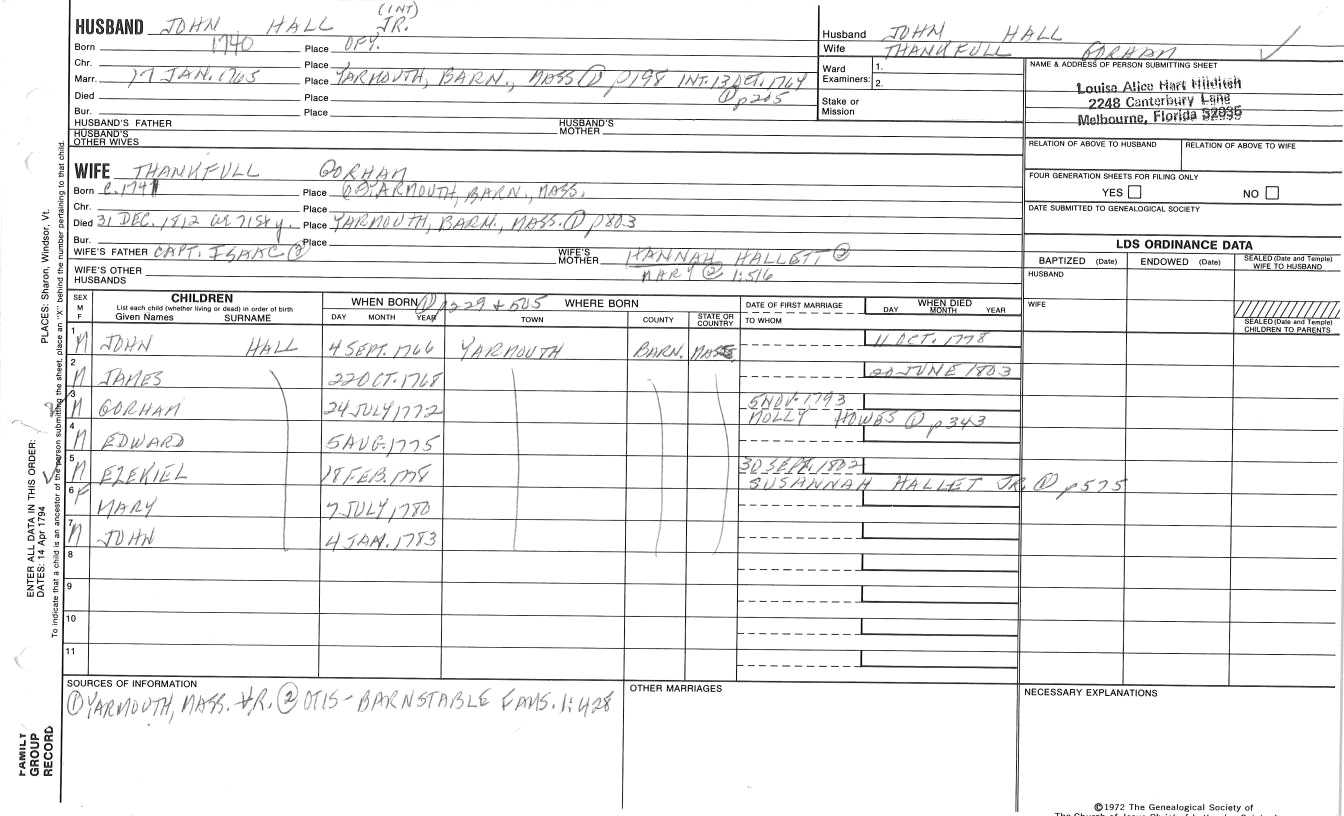 (INT)
HUSBAND JOHN HALL JR.
Born 1740 Place OFY.
Chr. Place
Marr. 17 JAN. 1765 Place YARMOUTH, BARN., MASS ① p198 INT. 13 OCT. 1764
① p205
Died Place
Bur. Place
HUSBAND'S FATHER HUSBAND'S MOTHER
HUSBAND'S OTHER WIVES
Husband JOHN HALL
Wife THANKFULL GORHAM ✓
Ward Examiners: 1.
2.
Stake or Mission
NAME & ADDRESS OF PERSON SUBMITTING SHEET
Louisa Alice Hart Hilditch
2248 Canterbury Lane
Melbourne, Florida 32935
RELATION OF ABOVE TO HUSBAND RELATION OF ABOVE TO WIFE
FOUR GENERATION SHEETS FOR FILING ONLY
YES NO
DATE SUBMITTED TO GENEALOGICAL SOCIETY
WIFE THANKFULL GORHAM
Born C. 1741 Place YARMOUTH, BARN., MASS.
Chr. Place
Died 31 DEC. 1812 ae 71 sty. Place YARMOUTH, BARN., MASS. ① p803
Bur. Place
WIFE'S FATHER CAPT. ISAAC ② WIFE'S MOTHER HANNAH HALLETT ②
MARY ② 1:516
WIFE'S OTHER HUSBANDS
LDS ORDINANCE DATA
BAPTIZED (Date) ENDOWED (Date) SEALED (Date and Temple) WIFE TO HUSBAND
HUSBAND
WIFE
SEALED (Date and Temple) CHILDREN TO PARENTS
SEX M F CHILDREN WHEN BORN ① p229 + 505 WHERE BORN DATE OF FIRST MARRIAGE WHEN DIED
List each child (whether living or dead) in order of birth
Given Names SURNAME DAY MONTH YEAR TOWN COUNTY STATE OR COUNTRY TO WHOM DAY MONTH YEAR
1 M JOHN HALL 4 SEPT. 1766 YARMOUTH BARN. MASS. 11 OCT. 1778
2 M JAMES 22 OCT. 1768 20 JUNE 1803
3 M GORHAM 24 JULY 1772 5 NOV. 1793
MOLLY HOWES ① p343
4 M EDWARD 5 AUG. 1775
5 M EZEKIEL 18 FEB. 1778 30 SEPT. 1802
SUSANNAH HALLET JR. ① p575
6 F MARY 7 JULY 1780
7 M JOHN 4 JAN. 1783
8
9
10
11
SOURCES OF INFORMATION
① YARMOUTH, MASS. VR. ② OTIS - BARNSTABLE FAMS. 1:428
OTHER MARRIAGES
NECESSARY EXPLANATIONS
©1972 The Genealogical Society of
ENTER ALL DATA IN THIS ORDER:
DATES: 14 Apr 1794 PLACES: Sharon, Windsor, Vt.
To indicate that a child is an ancestor of the person submitting the sheet, place an "X" behind the number pertaining to that child.
FAMILY GROUP RECORD